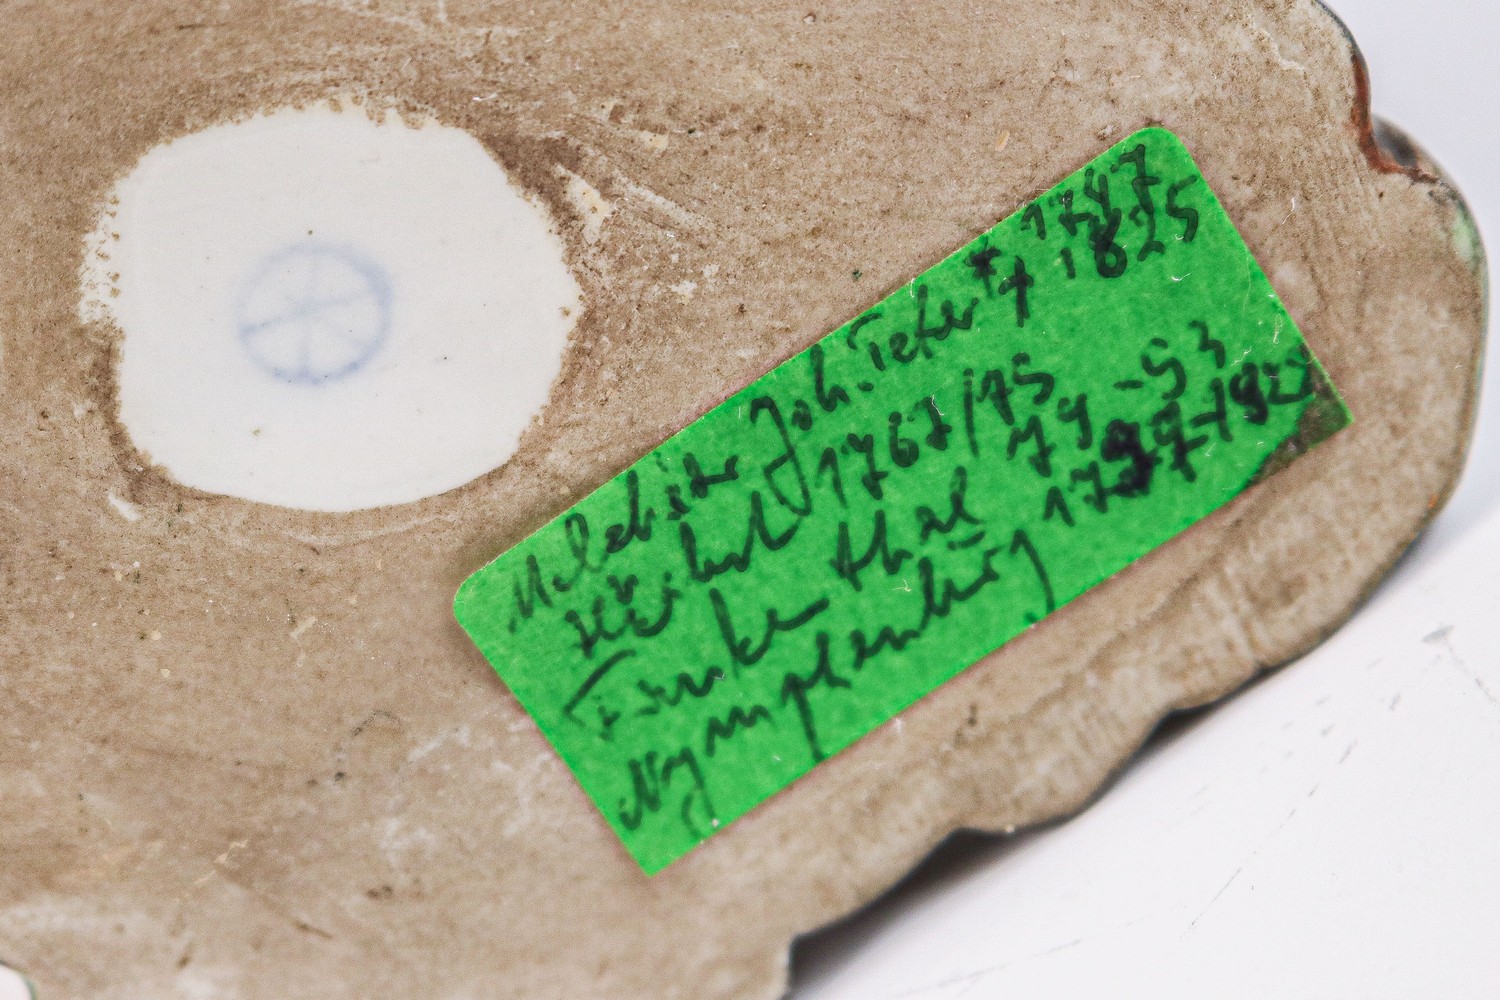 Melchior Joh. Peter * 1747
† 1825
Höchst 1767/75
Frankenthal 79 - 93
Nymphenburg 1797-1822